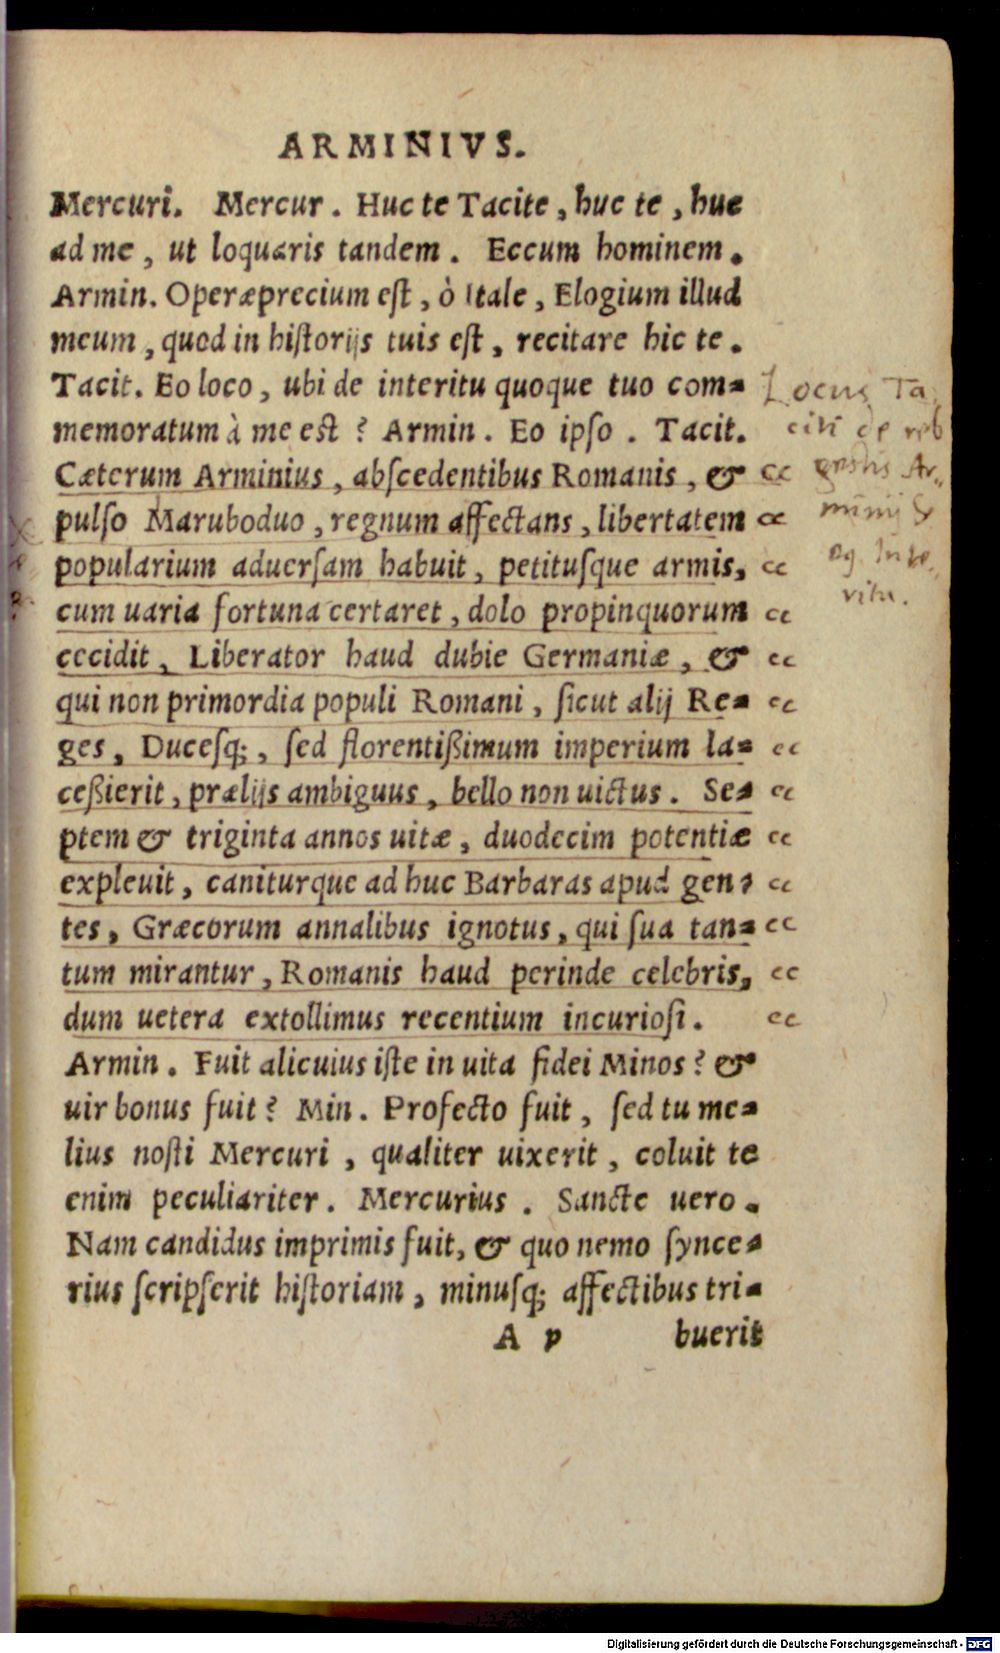 ARMINIVS.
Mercuri. Mercur. Huc te Tacite, huc te, huc
ad me, ut loquaris tandem. Eccum hominem.
Armin. Operæprecium eſt, ò Itale, Elogium illud
meum, quod in hiſtorijs tuis eſt, recitare hic te.
Tacit. Eo loco, ubi de interitu quoque tuo com-
memoratum à me est? Armin. Eo ipſo. Tacit.
Cæterum Arminius, abſcedentibus Romanis, &
pulſo Maruboduo, regnum affectans, libertatem
popularium aduerſam habuit, petituſque armis,
cum uaria fortuna certaret, dolo propinquorum
cecidit, Liberator haud dubie Germaniæ, &
qui non primordia populi Romani, ſicut alij Re-
ges, Duceſq;, ſed florentißimum imperium la-
ceßierit, prælijs ambiguus, bello non uictus. Se-
ptem & triginta annos uitæ, duodecim potentiæ
expleuit, caniturque ad huc Barbaras apud gen-
tes, Græcorum annalibus ignotus, qui ſua tan-
tum mirantur, Romanis haud perinde celebris,
dum uetera extollimus recentium incurioſi.
Armin. Fuit alicuius iſte in uita fidei Minos? &
uir bonus fuit? Min. Profecto fuit, ſed tu me-
lius noſti Mercuri, qualiter uixerit, coluit te
enim peculiariter. Mercurius. Sancte uero.
Nam candidus imprimis fuit, & quo nemo ſynce-
rius ſcripſerit hiſtoriam, minuſq; affectibus tri-
A p buerit
Locus Ta
citi de reb
gestis Ar-
minij &
Digitalisierung gefördert durch die Deutsche Forschungsgemeinschaft - DFG